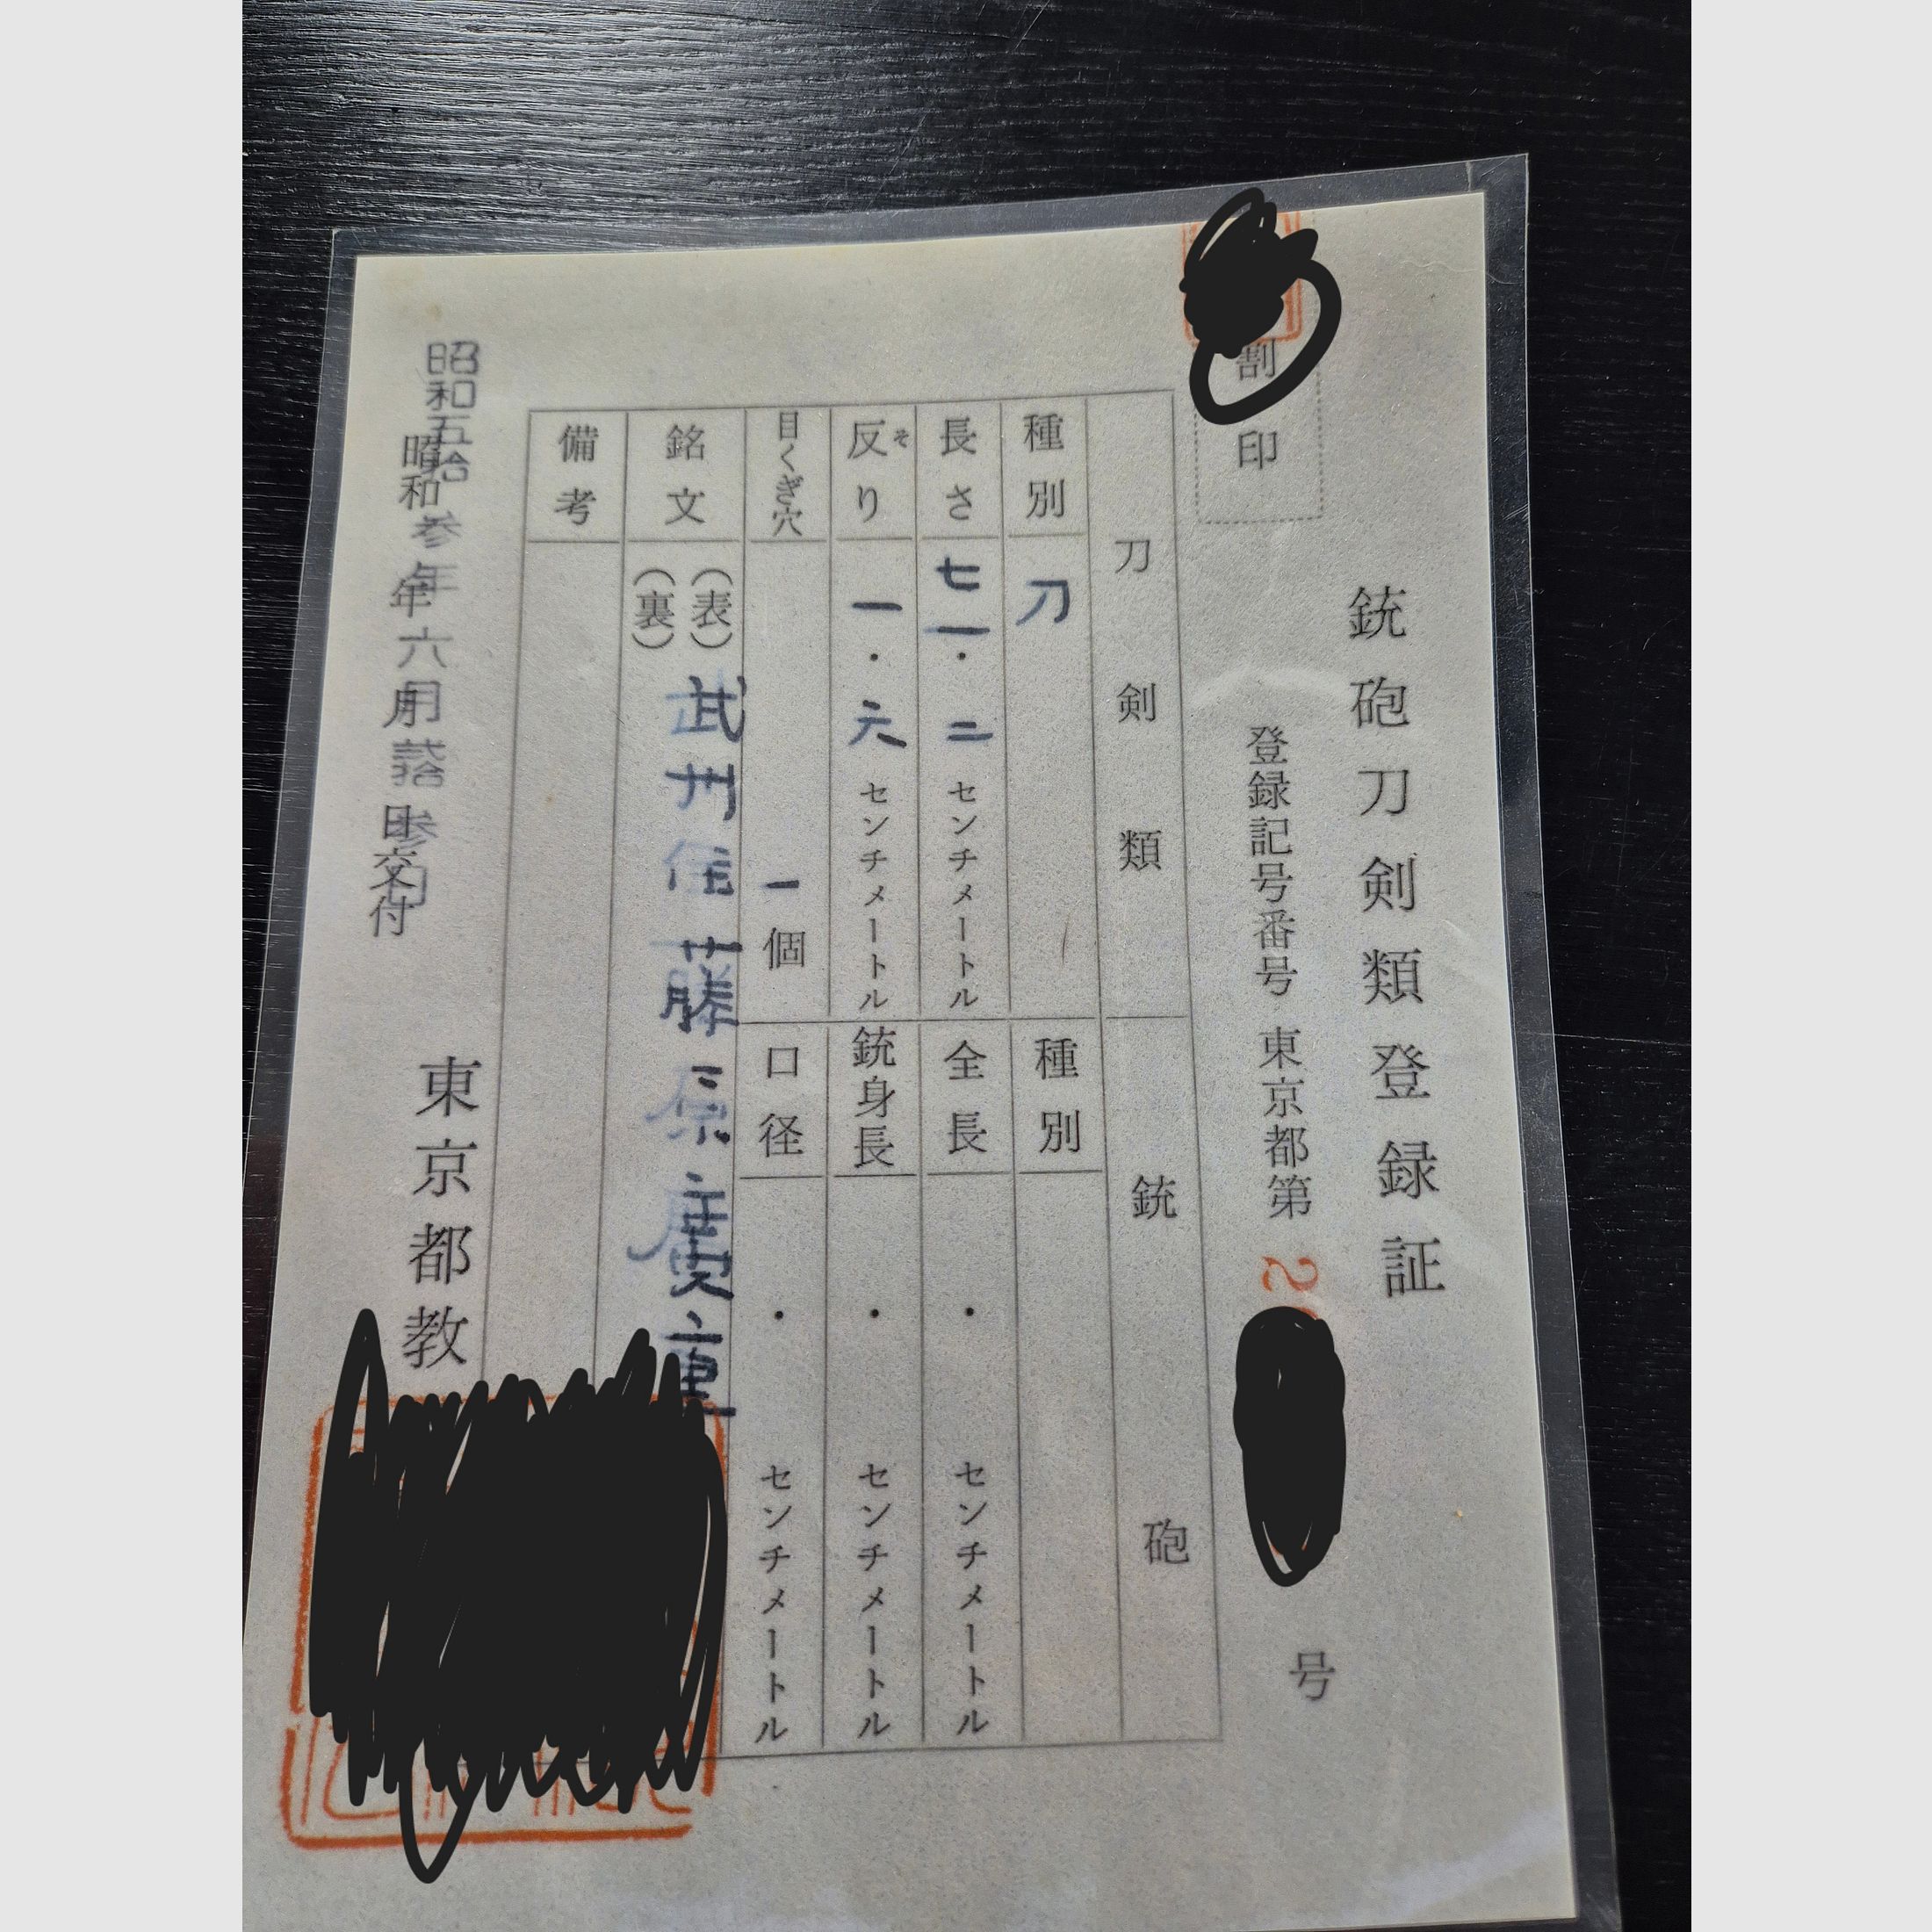 銃砲刀剣類登録証
割印
登録記号番号 東京都第2 号
刀剣類 銃砲
種別 刀 種別
長さ 七一・二センチメートル 全長 ・ センチメートル
反り 一・六センチメートル 銃身長 ・ センチメートル
そ
目くぎ穴 一個 口径 ・ センチメートル
銘文 (表) 武州住藤原廣重
(裏)
備考
昭和五拾参年六月弐拾参日
昭和 年 月 日交付
東京都教